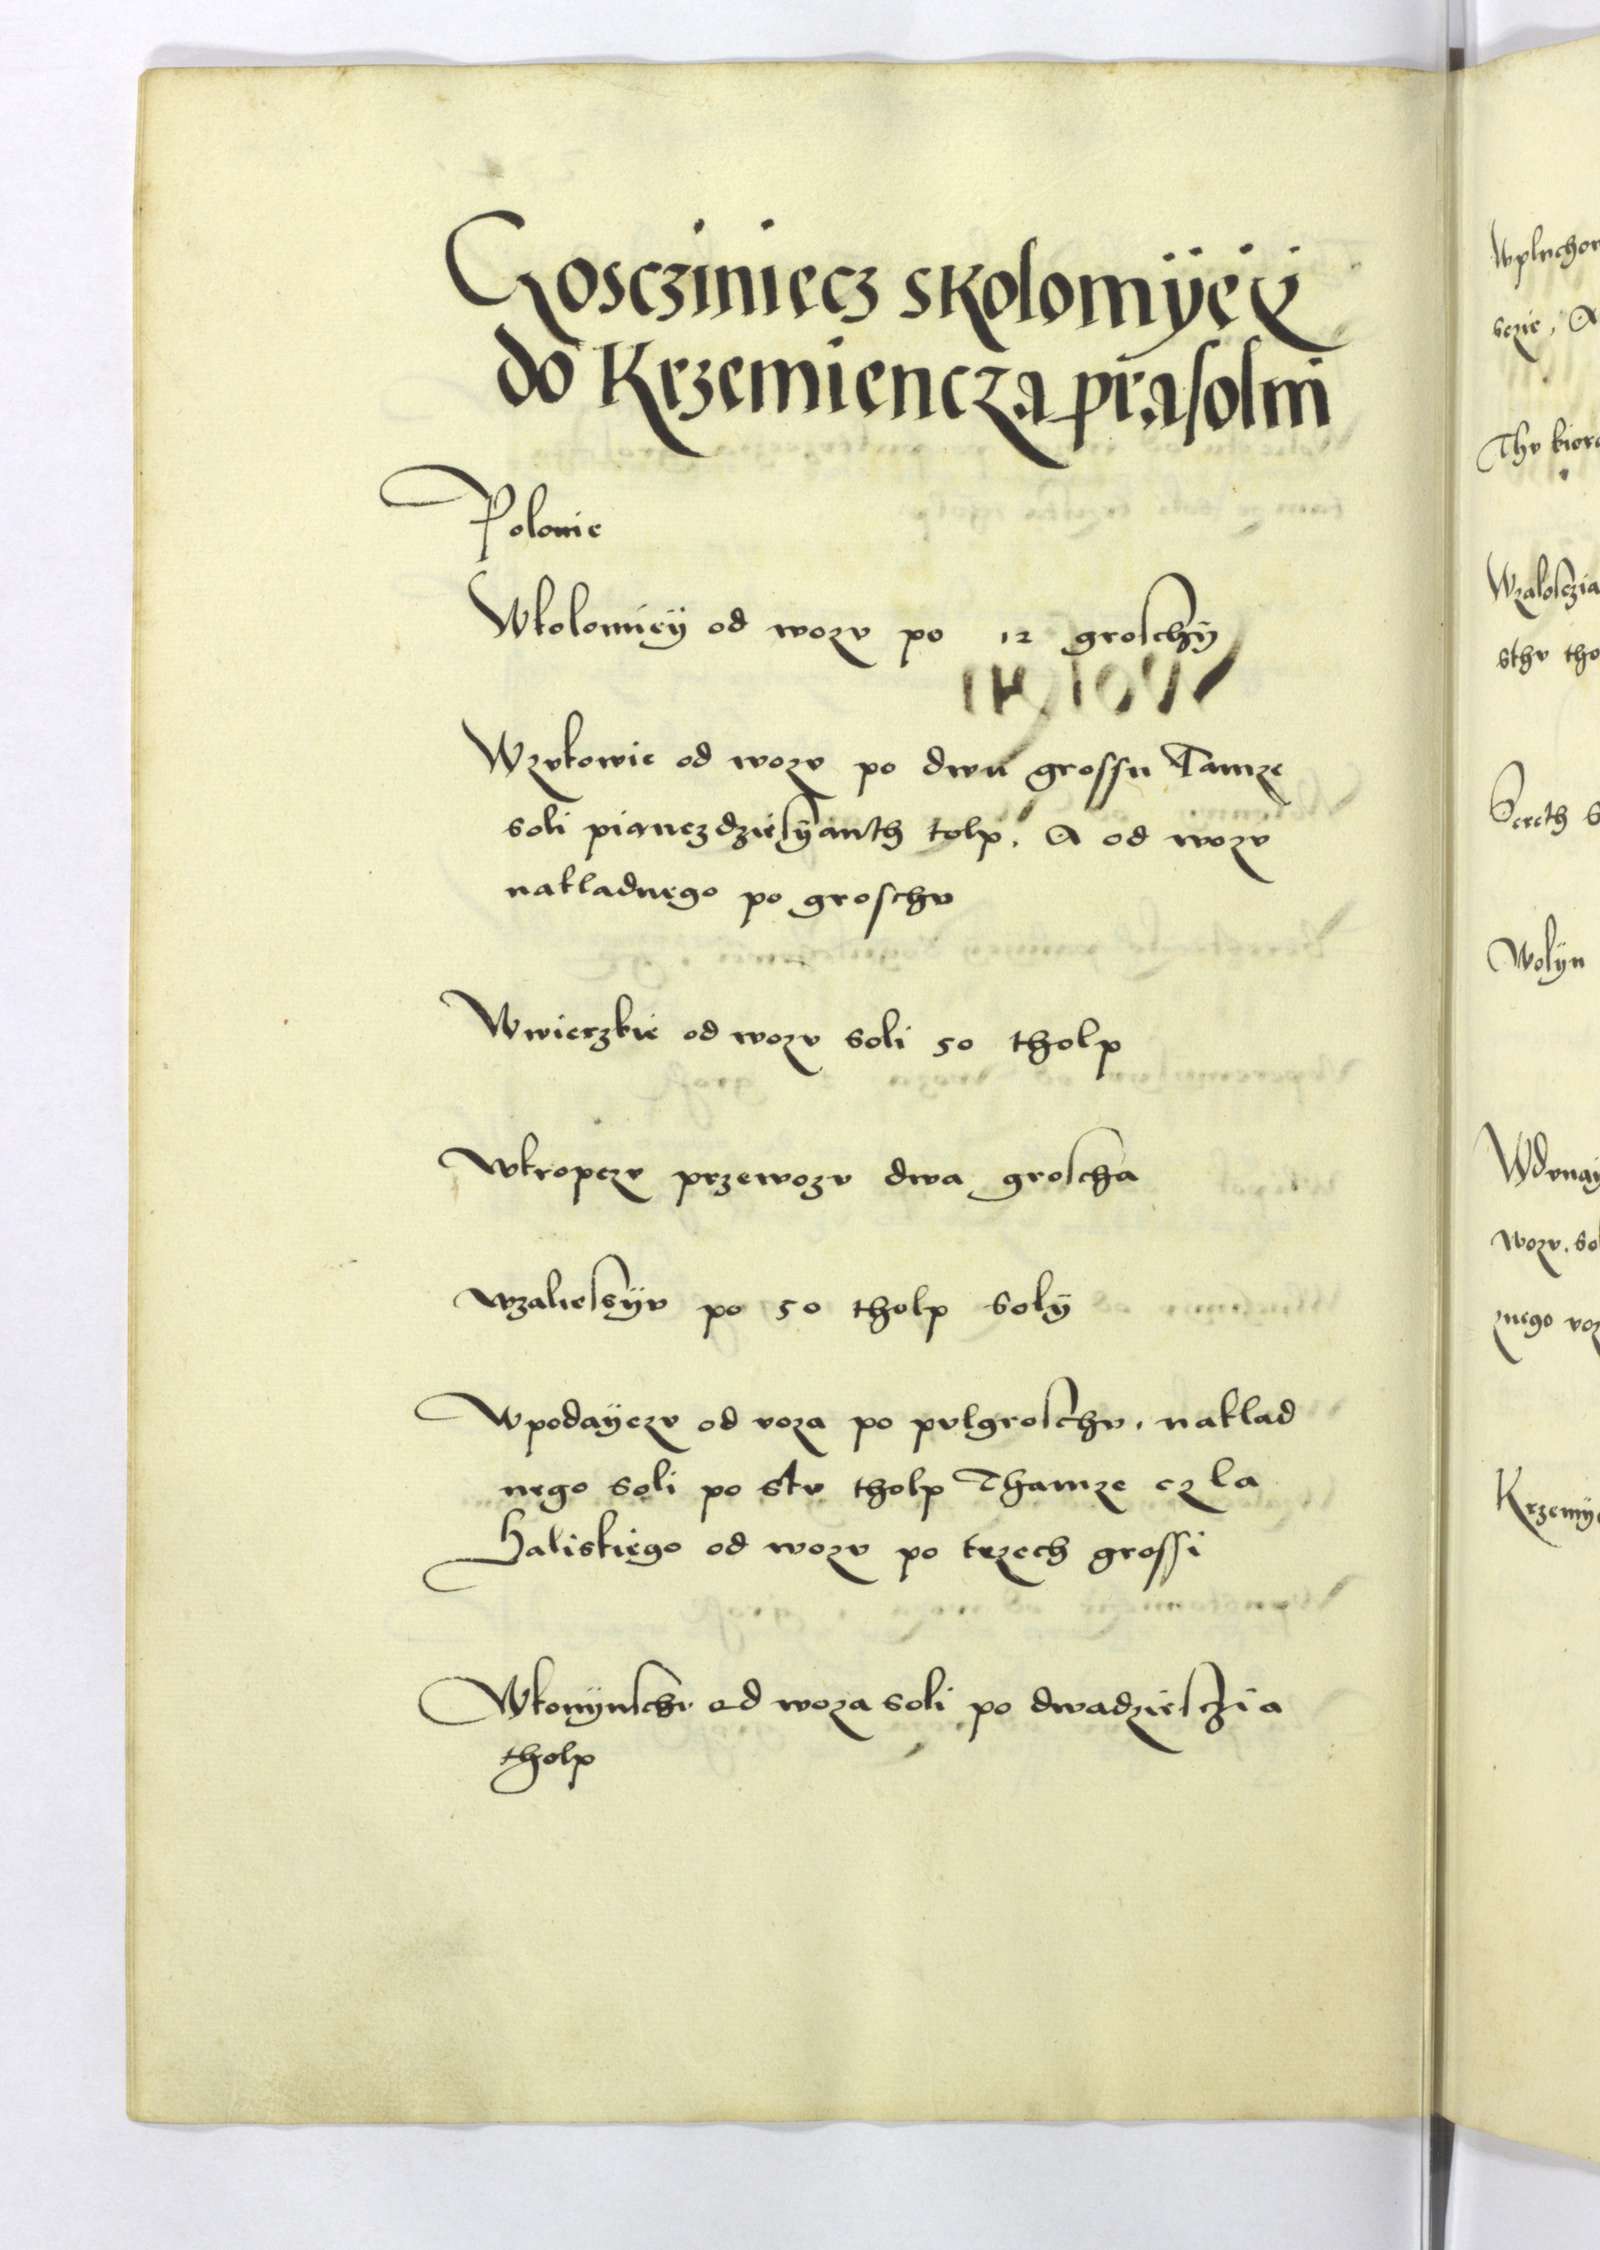 Goscziniecz skolomyey
do Krzemiencza prasolm
Polonie
Wkolomiey od wozv po 12 groschÿ
Wzvkowie od wozv po dwu grossu Tamze
soli pianczdziesÿanth tolp. A od wozv
nakladnego po groschv
Wwierzkie od wozv soli 50 tholp
Wkropczv przewozv dwa groscha
Wzaliesÿv po 50 tholp solÿ
Wpodaÿczv od voza po pvlgroschv. naklad
nego soli po stv tholp Thamze czla
Haliskiego od wozv po trzech grossi
Wkonÿnschv od woza soli po dwadziesczia
tholp
Wzalosczia
sthv tho
Sereth s
Wolÿn
wozv. sol
znego voz
Krzemÿe